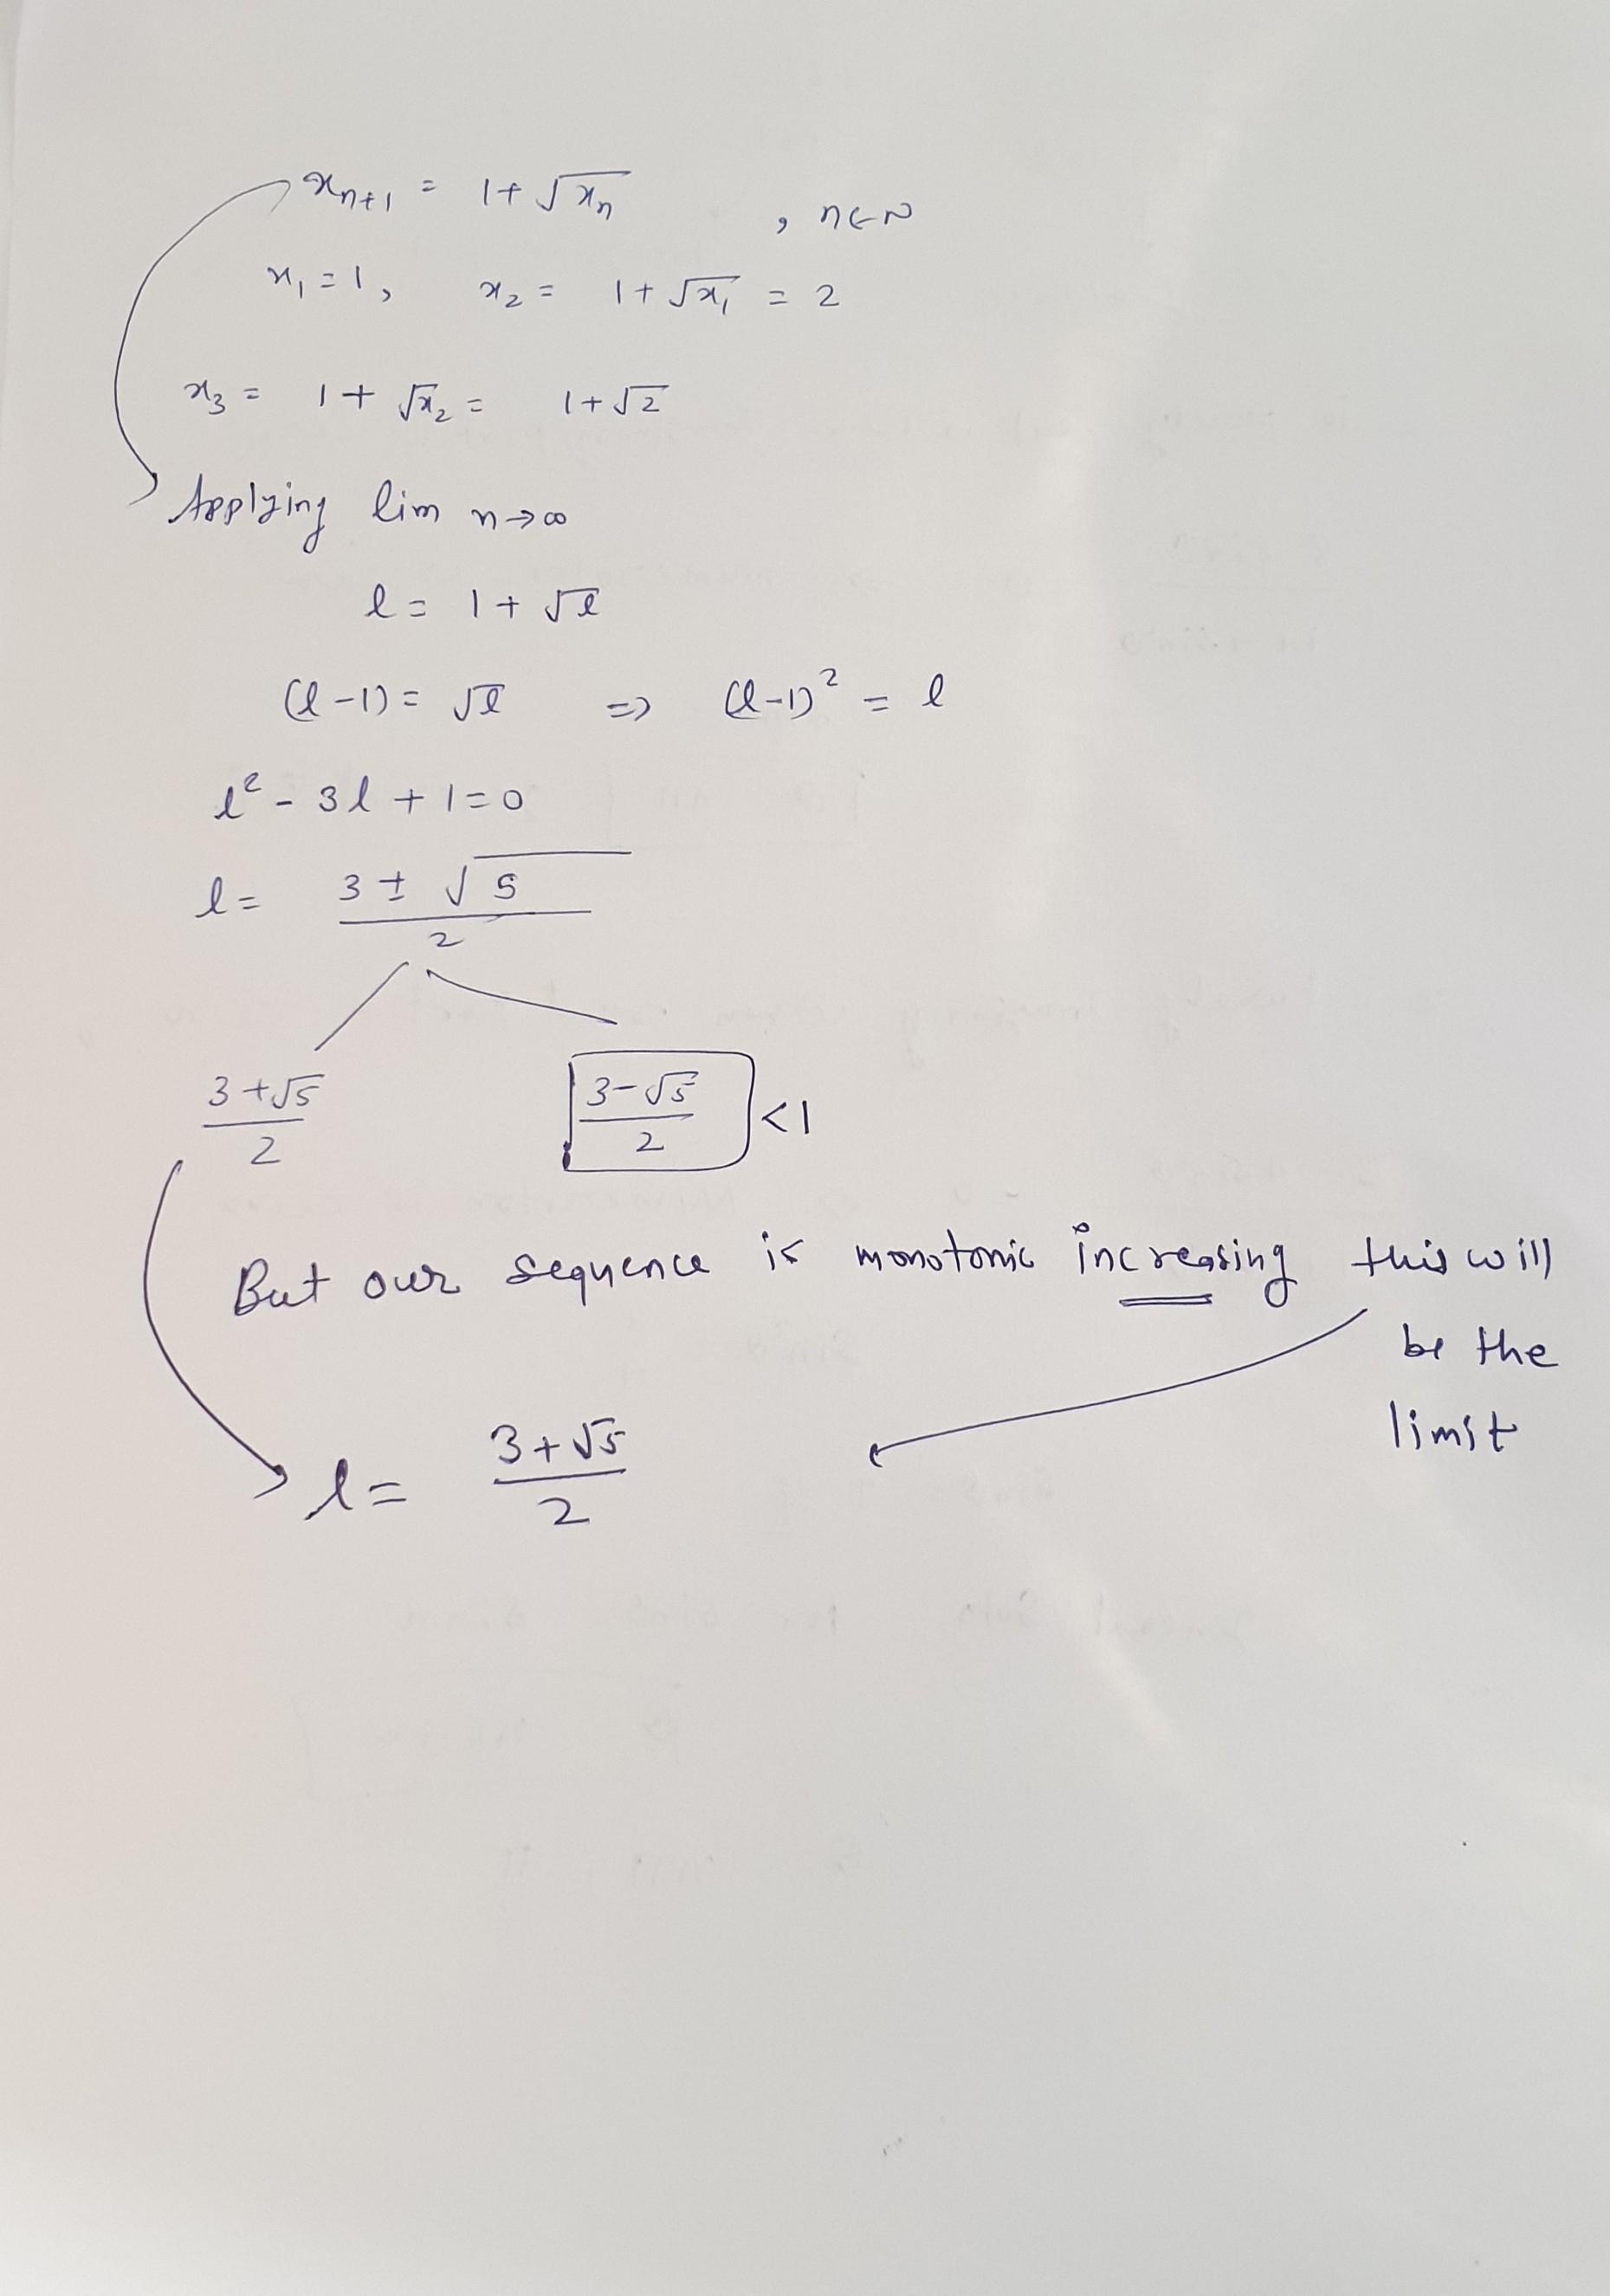 xₙ₊₁ = 1 + √xₙ , n ∈ N
x₁ = 1, x₂ = 1 + √x₁ = 2
x₃ = 1 + √x₂ = 1 + √2
Applying lim n→∞
l = 1 + √l
(l-1) = √l ⇒ (l-1)² = l
l² - 3l + 1 = 0
l = (3 ± √5)/2
(3+√5)/2 (3-√5)/2 < 1
But our sequence is monotonic increasing this will
be the
limit
l = (3+√5)/2